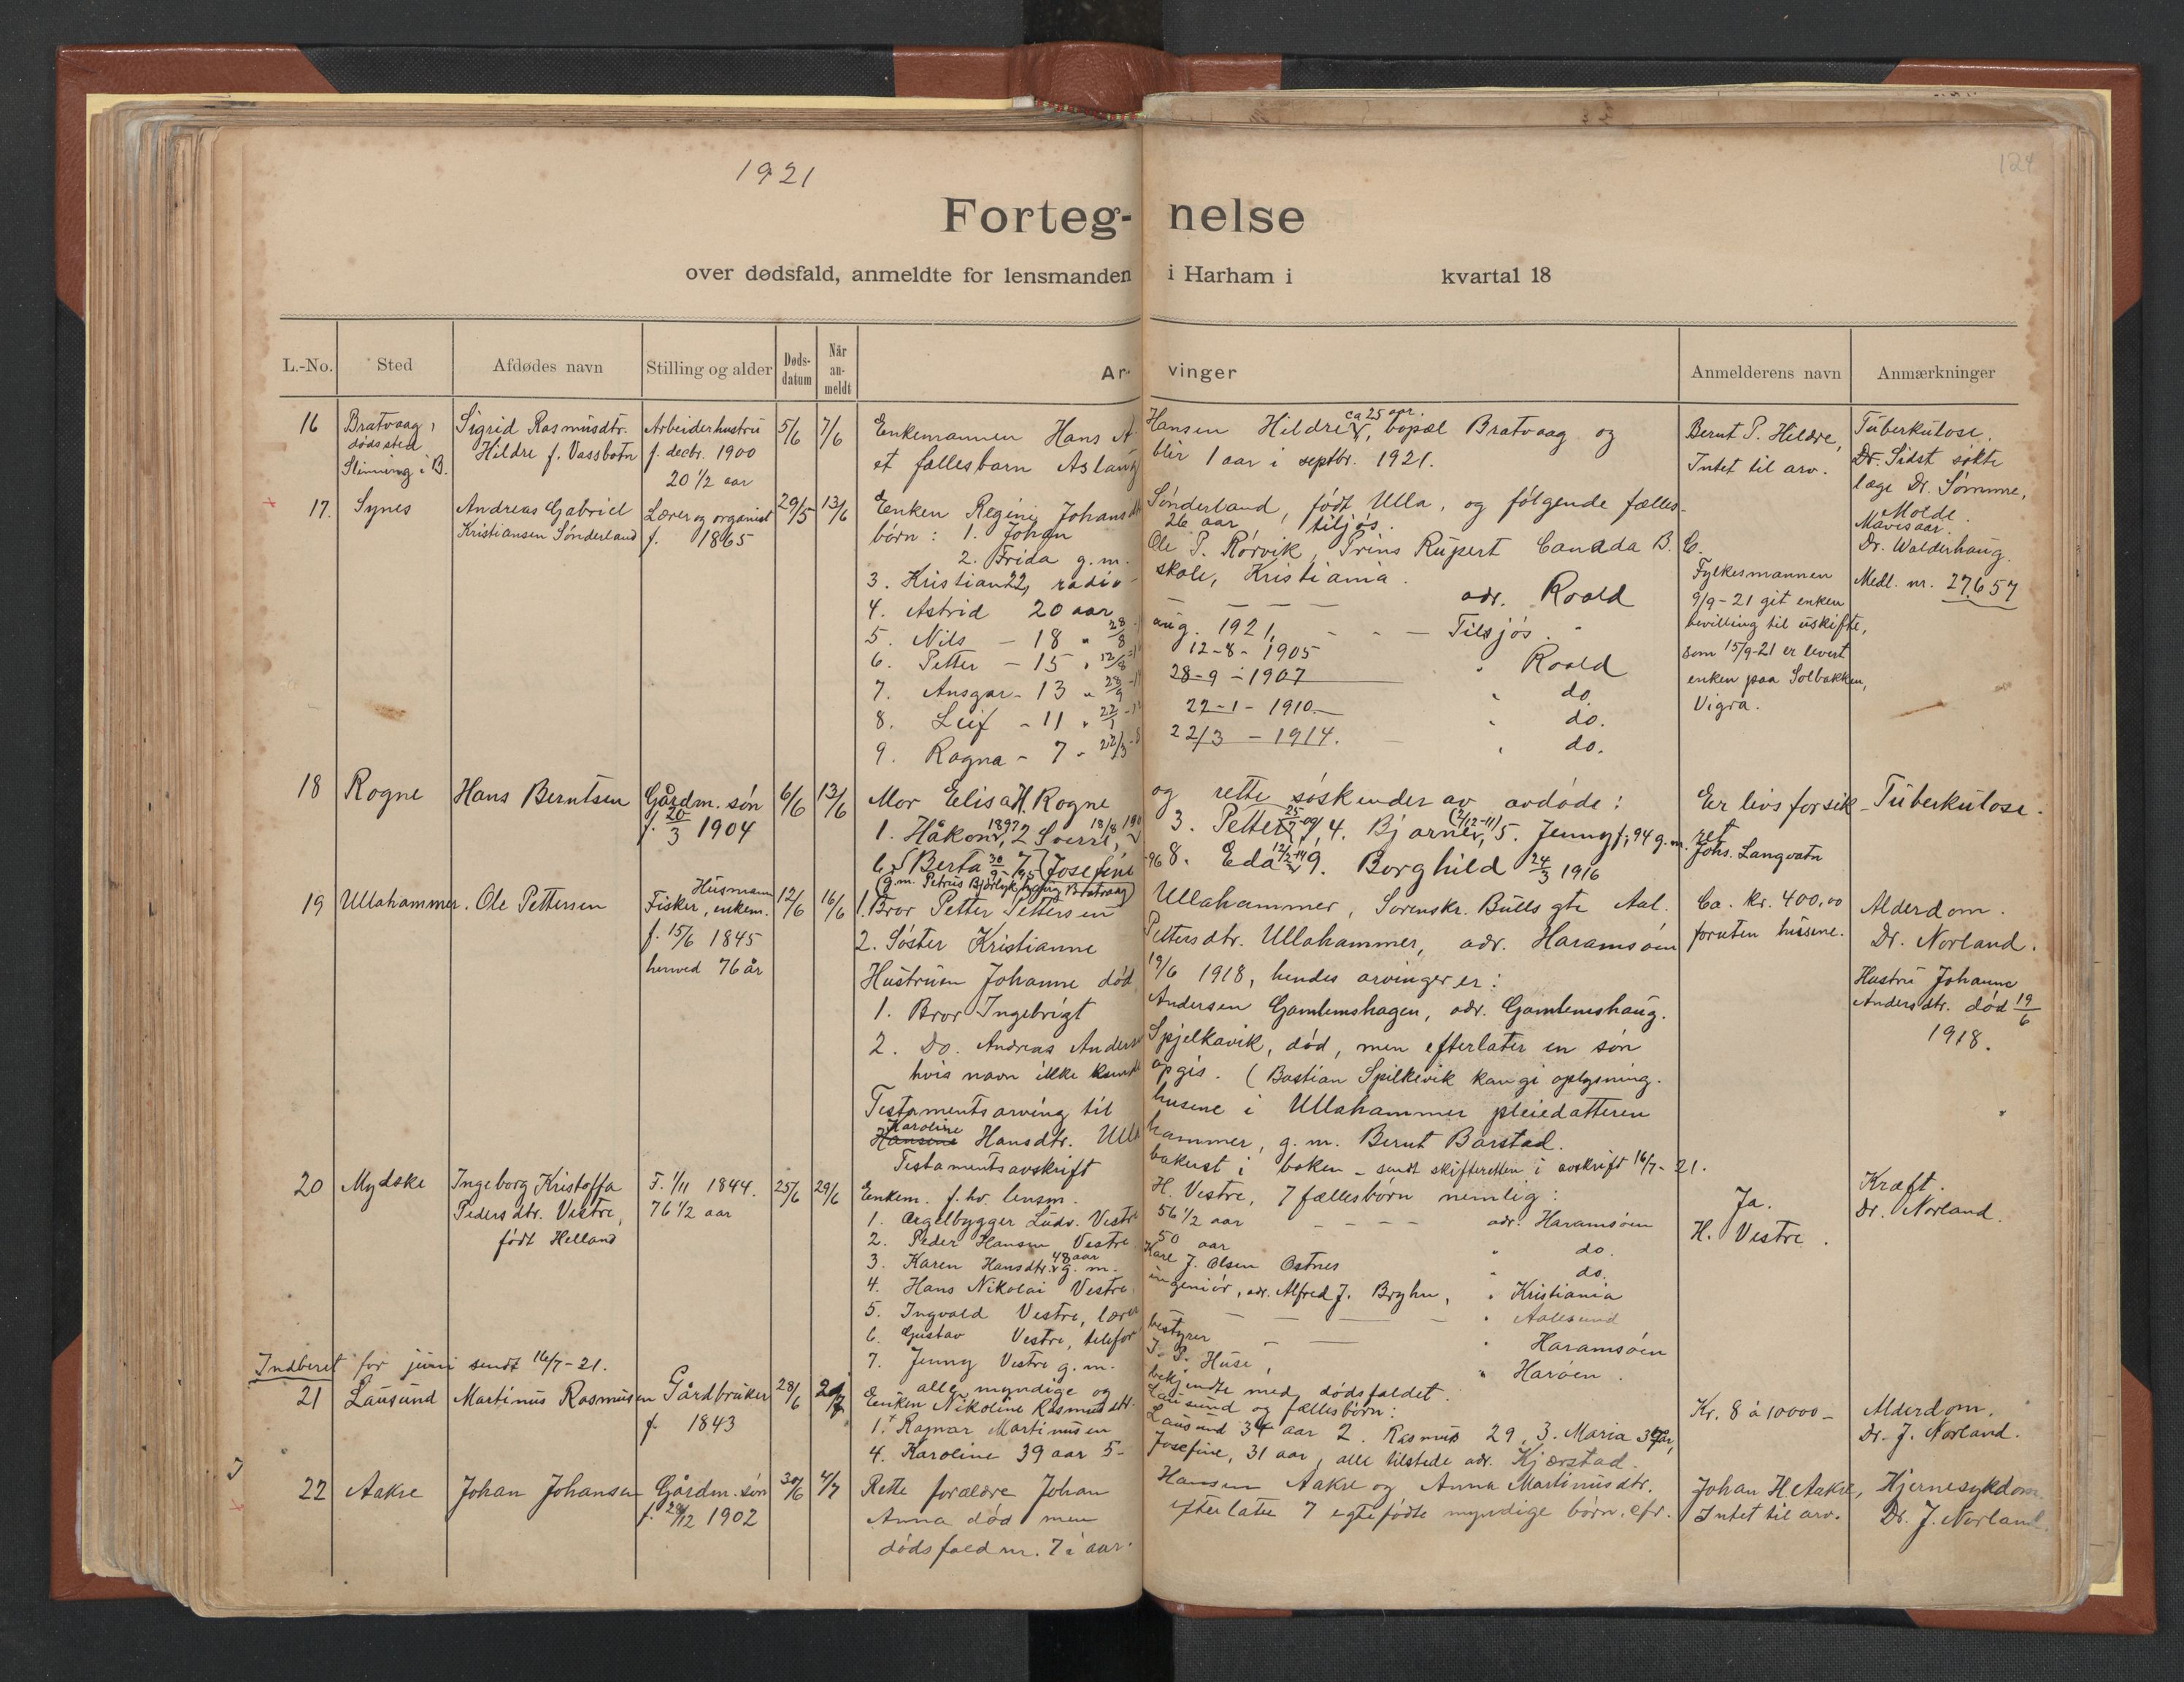 1921
124
Forteg- nelse
over dødsfald, anmeldte for lensmanden i Harham i kvartal 18
L.-No. Sted Afdødes navn Stilling og alder Døds-datum Når an-meldt Ar- vinger Anmelderens navn Anmærkninger
16 Bratvaag, dødssted i B.
Sigrid Rasmusdtr. Hildre f. Vassbotn
Arbeiderhustru
f. decbr. 1900
20 1/2 aar
5/6 7/6
Enkemannen Hans A. Hansen Hildre, ca 25 aar, bopæl Bratvaag og
et fællesbarn Aslaug blir 1 aar i septbr. 1921.
Bernt P. Hildre,
Intet til arv.
Tuberkulose.
Dr. Sidst søkte
læge Dr. Sømme,
Molde.
17. Synes
Andreas Gabriel
Kristiansen Sønderland
Lærer og organist
f. 1865
29/5 13/6
Enken Regine Johansdt Sønderland, født Ulla, og følgende fælles-
børn: 1. Johan 26 aar, tiljøs.
2. Frida g.m. Ole P. Rørvik, Prins Rupert Canada B.C.
3. Kristian 22, radioskole, Kristiania.
4. Astrid 20 aar — — — adr. Roald
5. Nils — 18 " 28/8 aug. 1921, - - — Tilsjøs.
6. Petter — 15 " 12/8 12-8-1905 " Roald
7. Ansgar - 13 " 28/9 28-9-1907 " do.
8. Leif - 11 " 22/1 22-1-1910 " do.
9. Ragna - 7 - 22/3 22/3 - 1914. " do.
Fylkesmannen
9/9-21 git enken
bevilling til uskifte,
som 15/9-21 er levert
enken paa Solbakken,
Vigra.
Mavesaar.
Dr. Walderhaug.
Medl. nr. 27657
18 Rogne
Hans Berntsen
Gårdm. søn
f. 20/3 1904
6/6 13/6
Mor Elisa H. Rogne og rette søskender av avdøde:
1. Håkon 1897, 2 Sverre, 18/8 3. Petter 4. Bjarne, (2/12-11) 5. Jenny f. 94 g.m. Johs. Langvatn
6 Berta 7 Josefine 96 8. Eda 9. Borghild 24/3 1916
(g.m. Petrus Bratvaag)
Er livsforsikret
Tuberkulose.
19 Ullahammer.
Ole Pettersen
Husmann
Fisker, enkem.
f. 15/6 1845
henved 76 år
12/6 16/6
1. Bror Petter Pettersen Ullahammer, Sorenskr. Bulls gte Aal.
2. Søster Kristianne Pettersdtr. Ullahammer, adr. Haramsøen
Hustruen Johanne død 19/6 1918, hendes arvinger er:
1. Bror Ingebrigt Andersen Gamlemshagen, adr. Gamlemshaug.
2. Do. Andreas Anders Spjelkavik, død, men efterlater en søn
hvis navn ikke kunde opgis. (Bastian Spilkevik kan gi oplysning.
Testamentsarving til husene i Ullahammer pleiedatteren
Karoline Hansine Hansdtr. Ullahammer, g.m. Bernt Barstad.
Testamentsavskrift bakerst i boken - sendt skifteretten i avskrift 16/7-21.
Ca. kr. 400,00
foruten husene.
Alderdom.
Dr. Norland.
Hustru Johanne
Andersdtr. død 19/6
1918.
20 Mydske
Ingeborg Kristoffa
Pedersdtr. Vestre,
født Helland
F. 1/11 1844.
76 1/2 aar
25/6 29/6
Enkem. f. hv. lensm. H. Vestre, 7 fællesbørn nemlig:
1. Orgelbygger Ludv. Vestre 56 1/2 aar - - - - adr. Haramsøen
2. Peder Hansen Vestre 50 aar " do.
3. Karen Hansdtr. 48 aar g.m. Karl J. Olsen Østnes " do.
4. Hans Nikolai Vestre, ingeniør, adr. Alfred J. Bryhn, " Kristiania
5. Ingvald Vestre, lærer — — — — " Aalesund
6. Gustav Vestre, telefonbestyrer — — " Haramsøen
7. Jenny Vestre g.m. J. P. Huse, " Harøen.
alle myndige og bekjendte med dødsfaldet.
Ja.
H. Vestre.
Kræft.
Dr. Norland.
Indberet for juni sendt 16/7-21.
21 Lausund
Martinus Rasmusen
Gårdbruker
f. 1843
28/6
Enken Nikoline Rasmusdtr. Lausund og fællesbørn:
1. Ragnar Martinusen Lausund 34 aar 2. Rasmus 29, 3. Maria
4. Karoline 39 aar 5- Josefine, 31 aar, alle tilstede adr. Kjærstad.
Kr. 8 à 10000 -
Alderdom.
Dr. J. Norland.
22 Aakre
Johan Johansen
Gårdm. søn
f. 12 1902
30/6 4/7
Rette forældre Johan Hansen Aakre og Anna Martinusdtr.
Anna død men efterlater 7 egtefødte myndige børn, cfr.
dødsfald nr. 7 i aar.
Johan H. Aakre,
Intet til arv.
Hjernesykdom.
Dr. J. Norland.